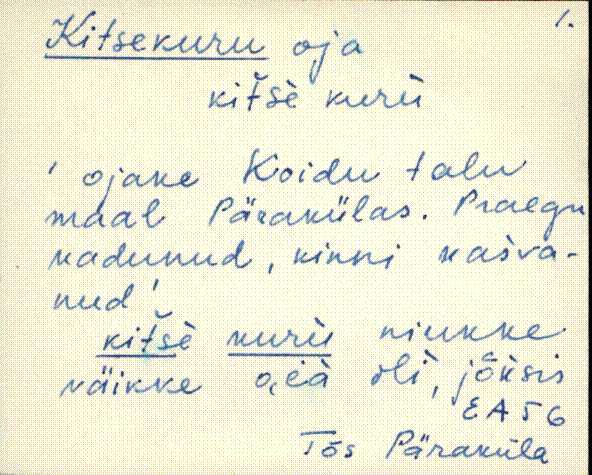 1.
Kitsekuru oja
kiťšè kurù
' ojake Koidu talu
maal Pärakülas. Praegu
kadunud, kinni kašva-
nud'
kiťšè kurù niukke
väikke o,eà oli, jõksis
EA 56
Tõs Päraküla